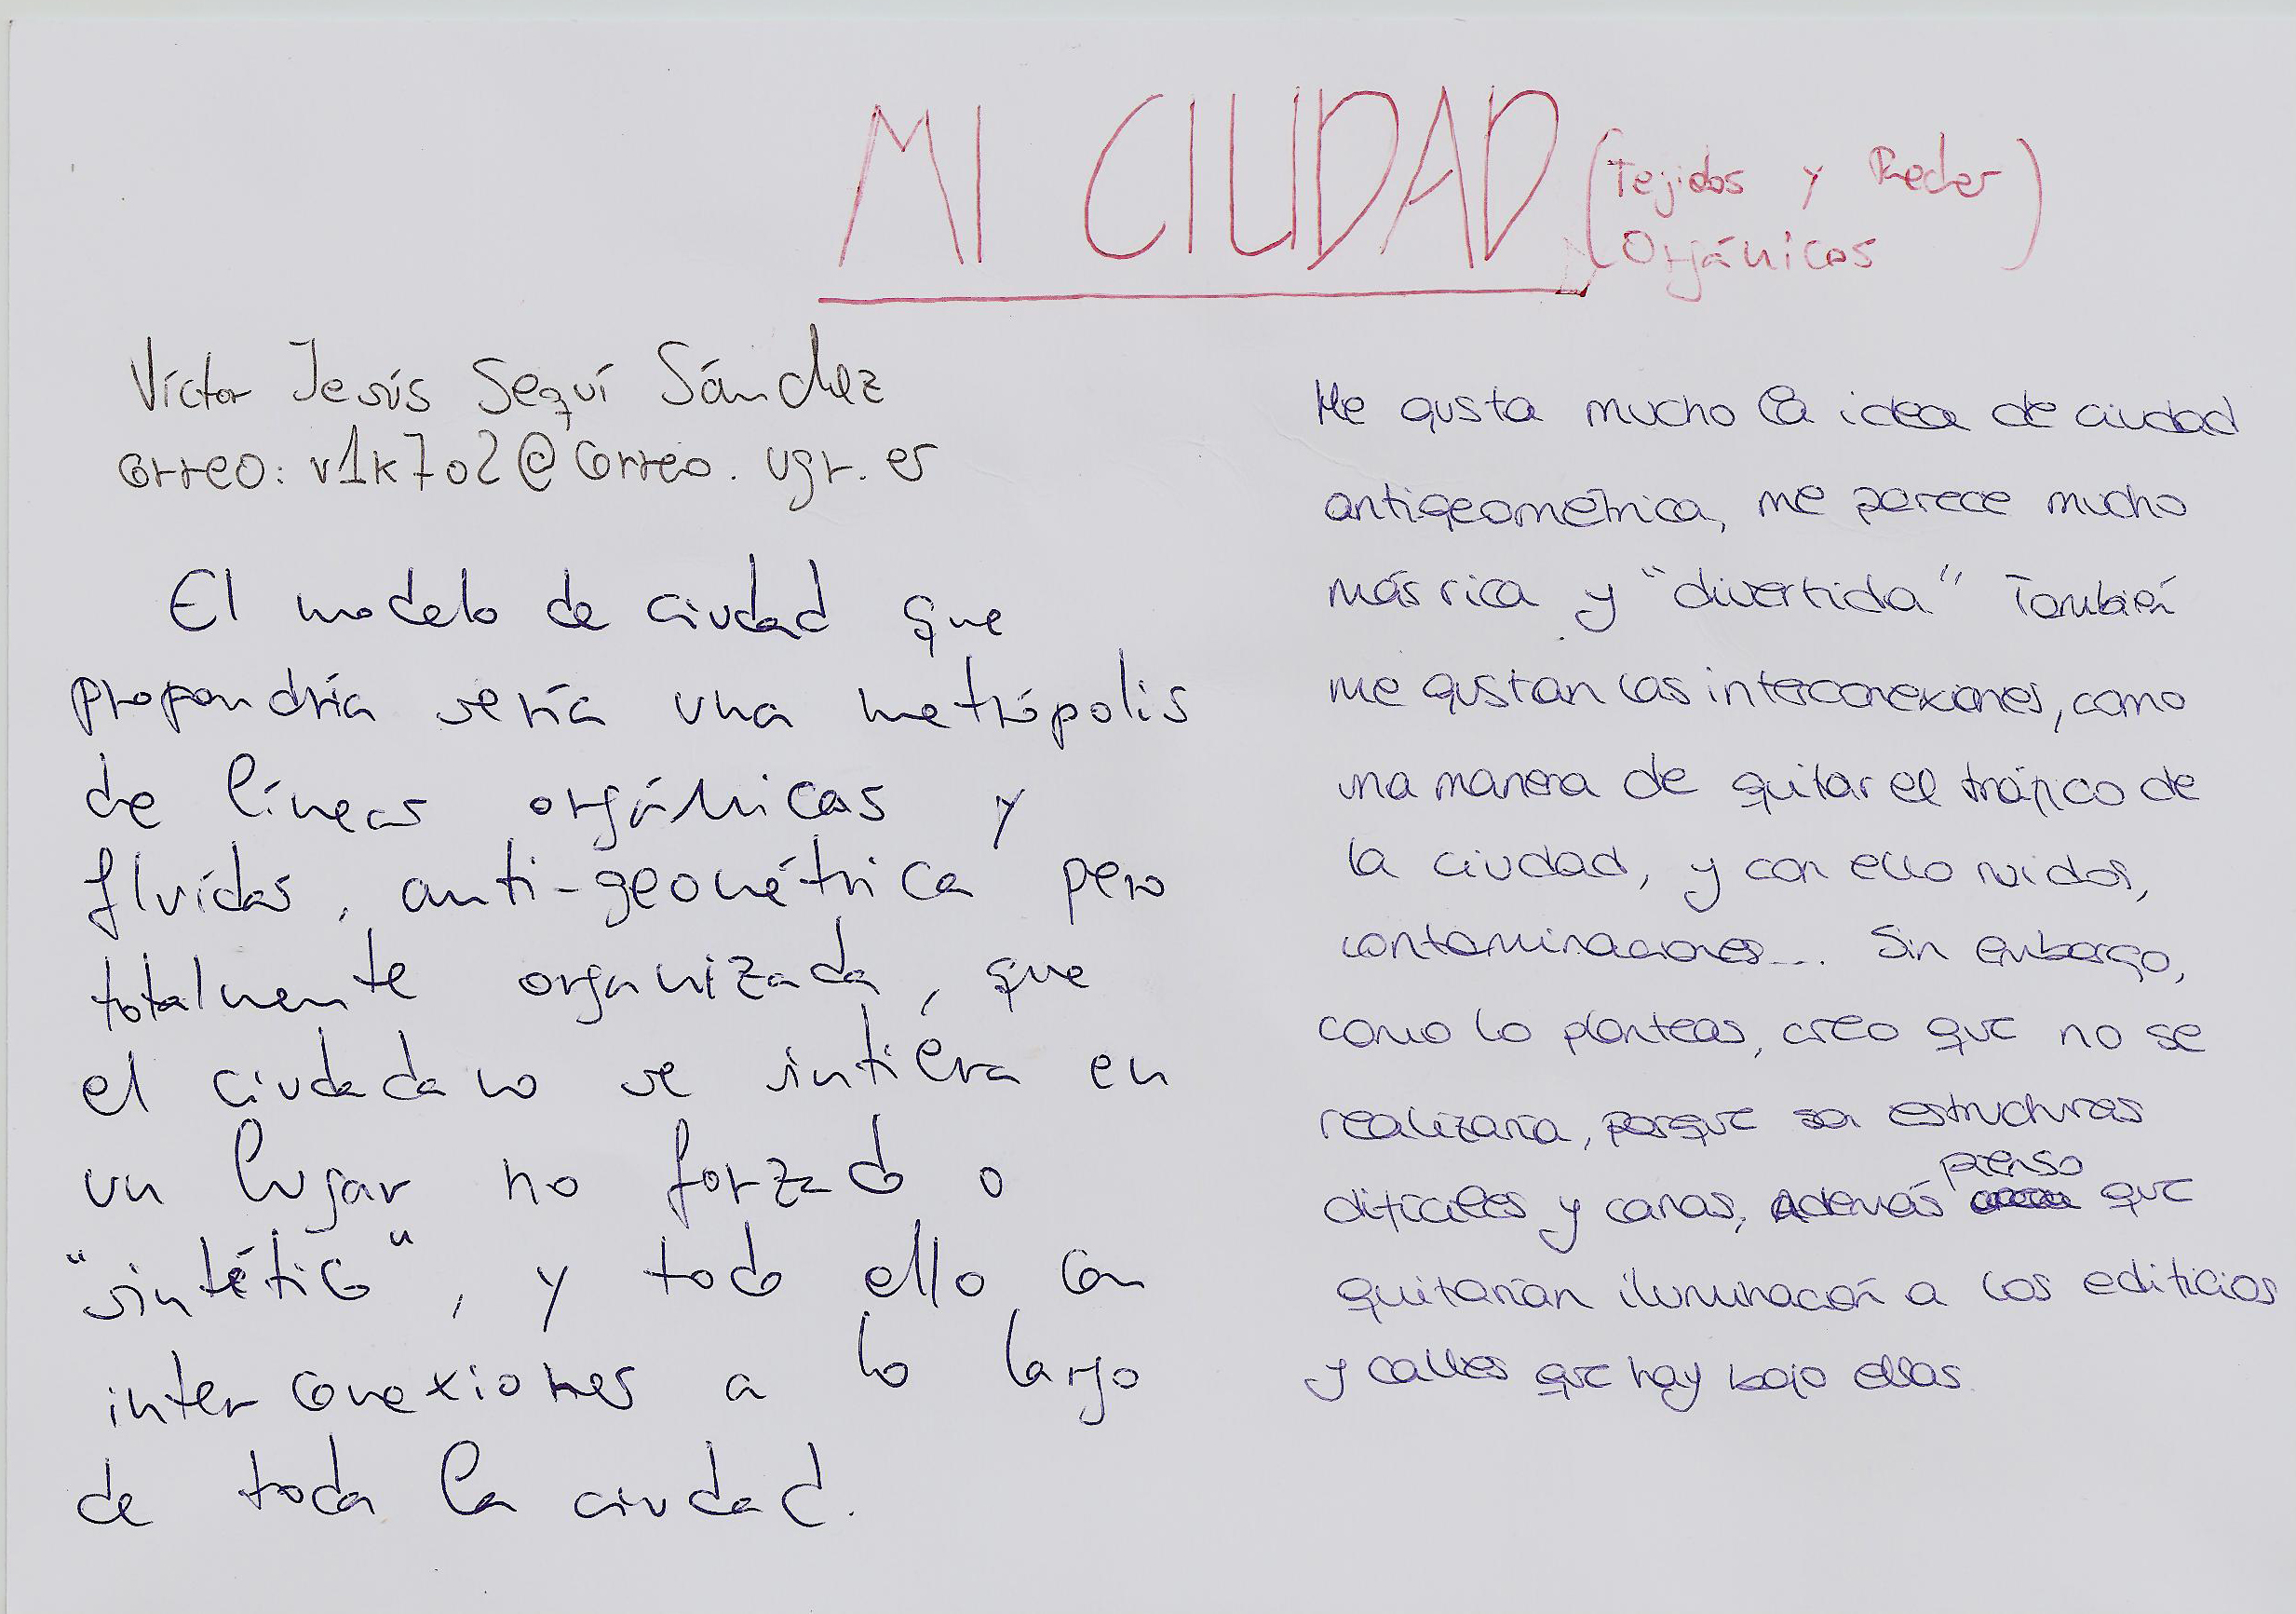 MI CIUDAD (Tejidos y Redes
Orgánicos)
Víctor Jesús Seguí Sánchez
correo: v1k7o2@correo.ugr.es
El modelo de ciudad que
propondría sería una metrópolis
de líneas orgánicas y
fluídas, anti-geométrica pero
totalmente organizada, que
el ciudadano se sintiéra en
un lugar no forzado o
"sintético", y todo ello con
interconexiones a lo largo
de toda la ciudad.
Me gusta mucho la idea de ciudad
antigeométrica, me parece mucho
más rica y "divertida" También
me gustan las interconexiones, como
una manera de quitar el tráfico de
la ciudad, y con ello ruidos,
contaminaciones... Sin embargo,
como lo planteas, creo que no se
realizaría, porque son estructuras
difíciles y caras, Además pienso que
quitarían iluminación a los edificios
y calles que hay bajo ellas.